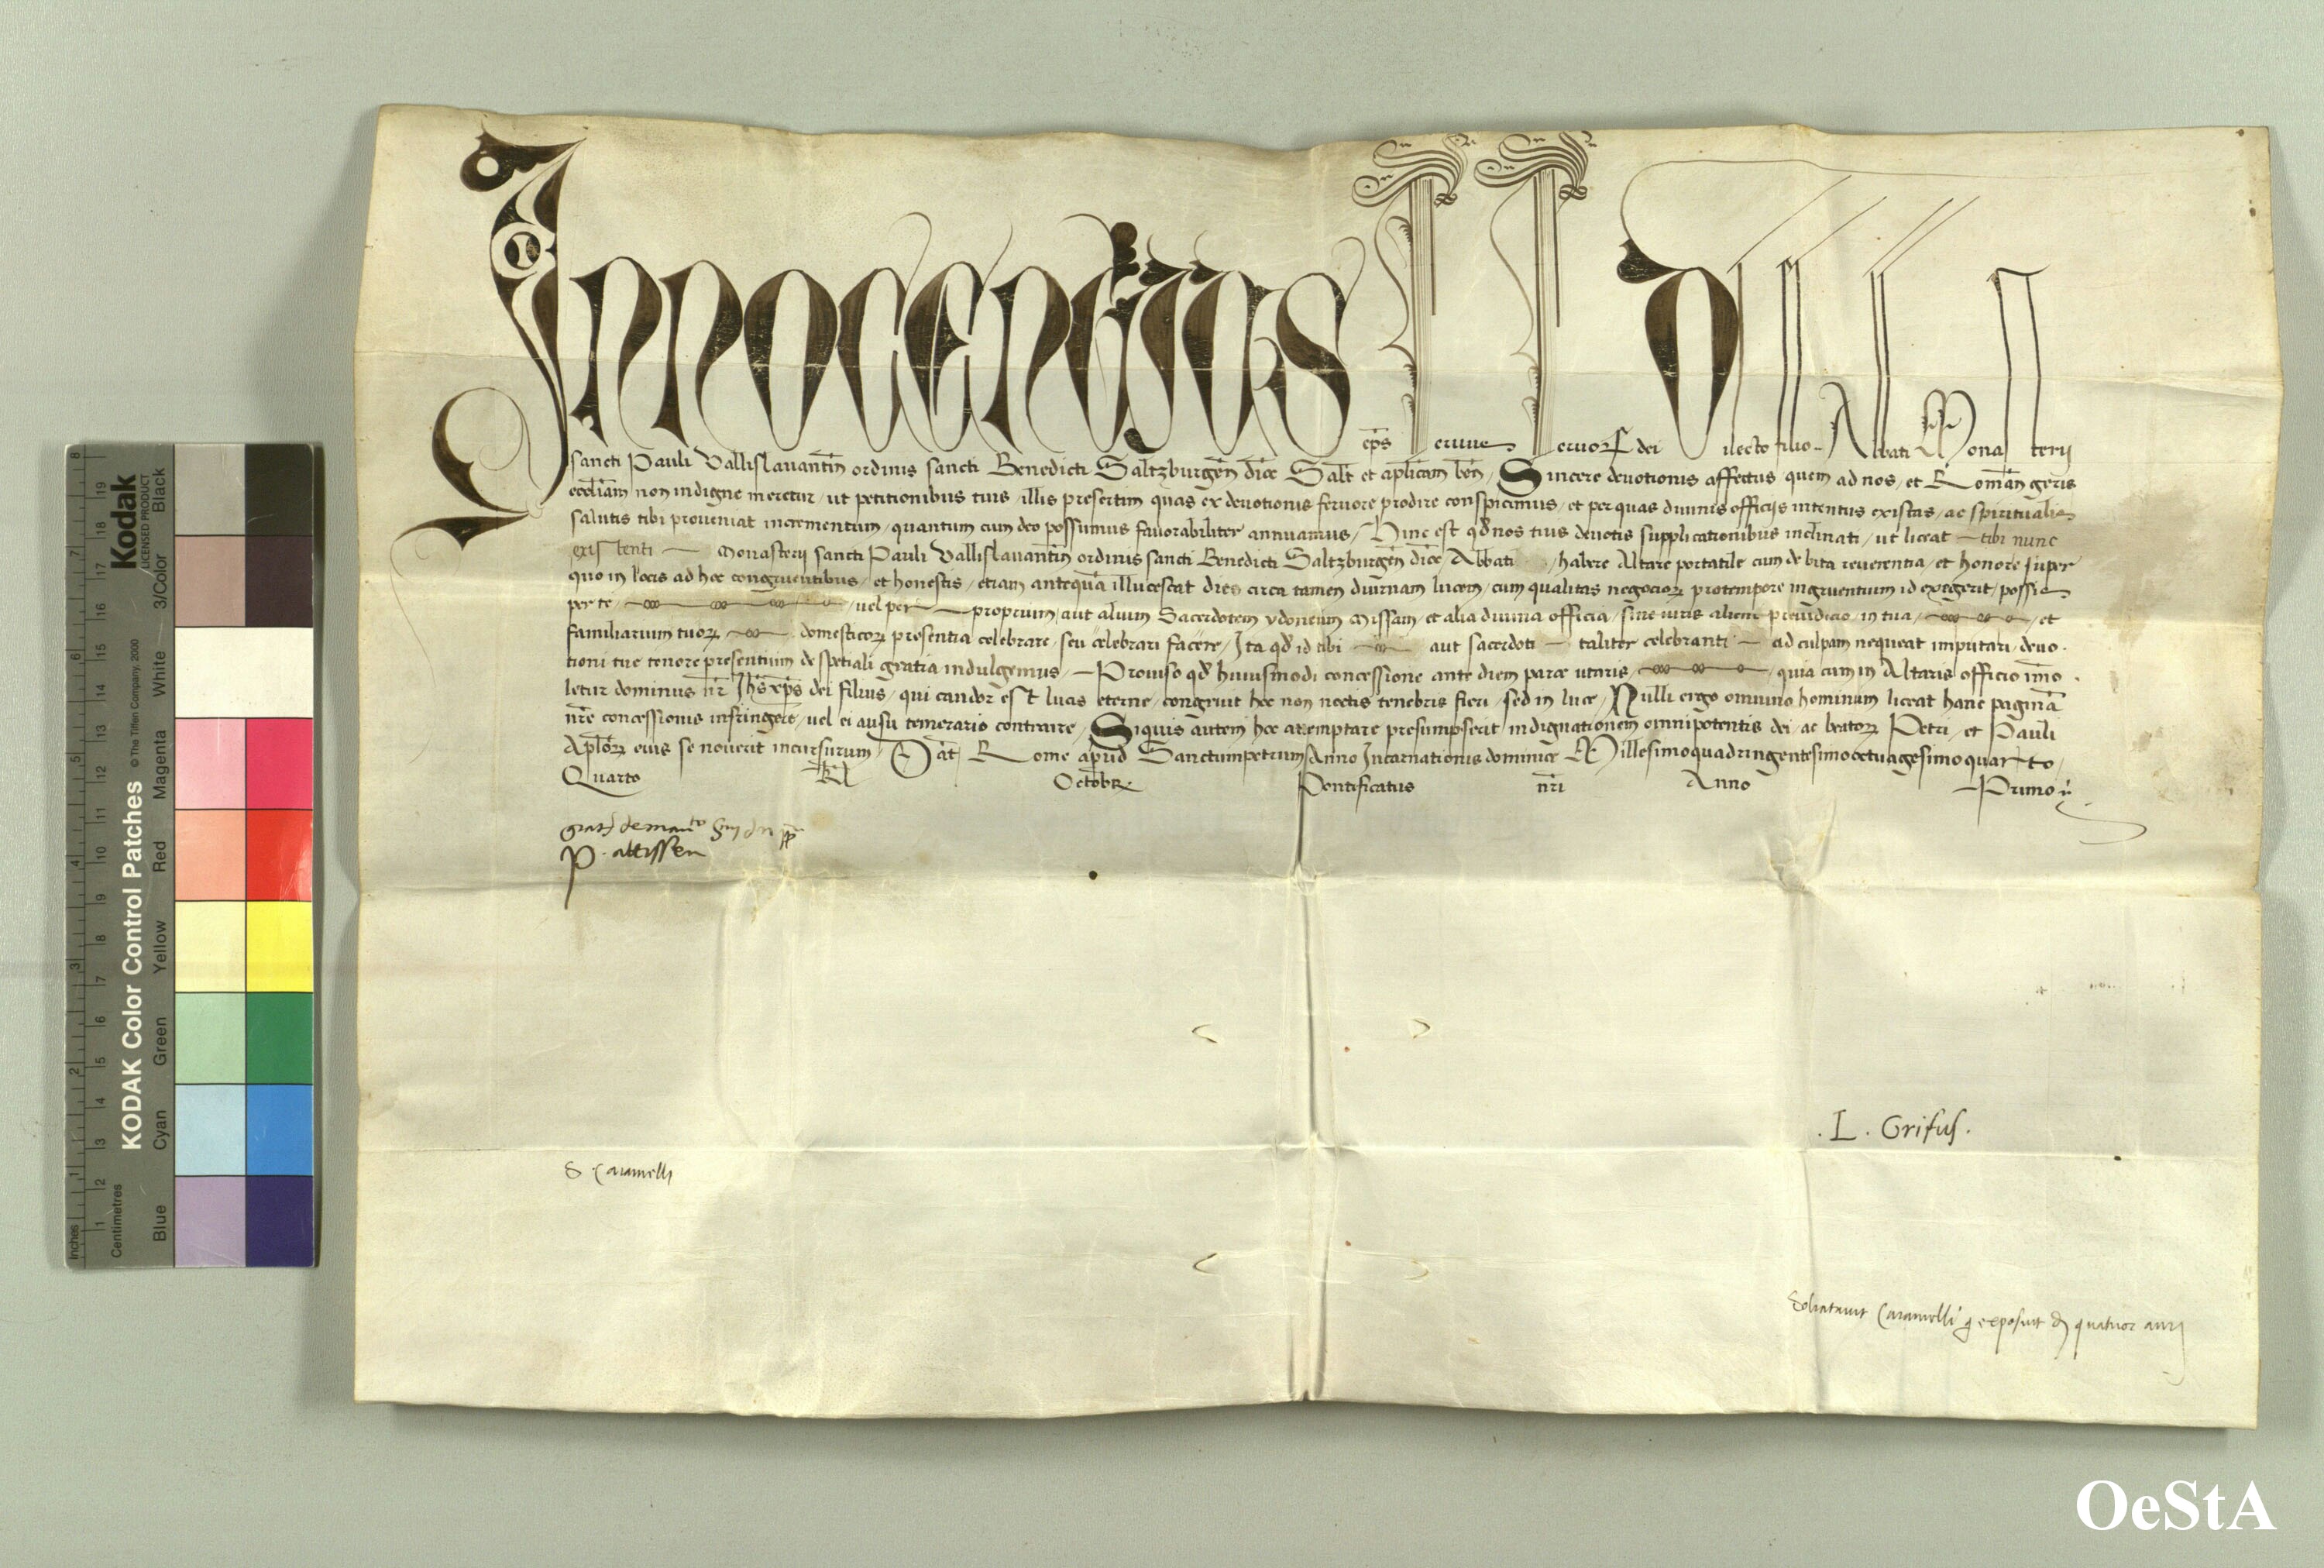 Innocentius ep̄s servus servorꝝ dei Dilecto filio Abbati Monasterij
sancti Pauli Vallislavantin̄ ordinis sancti Benedicti Saltzburgen̄ dioc̄ Salt̄ et ap̄licam ben̄ / Sincere devotionis affectus quem ad nos / et Roman̄ geris
eccl̄iam non indigne meretur / ut petitionibus tuis / illis presertim quas ex devotionis fervore prodire conspicimus / et per quas divinis officijs intentus existas / ac spiritualis
salutis tibi proveniat incrementum / quantum cum deo possumus favorabiliter annuamus / Hinc est qd̄ nos tuis devotis supplicationibus inclinati / ut liceat tibi nunc
existenti Monasterij sancti Pauli Vallislavantin̄ ordinis sancti Benedicti Saltzburgen̄ dioc̄ Abbati / habere Altare portatile cum debita reverentia / et honore super
quo in locis ad hoc congruentibus / et honestis / etiam antequā illucescat dies circa tamen diurnam lucem / cum qualitas negocioꝝ pro tempore ingruentium id exegerit / possis
per te / vel per proprium / aut alium Sacerdotem ydoneum Missam / et alia divina officia / sine iuris alieni preiudicio / in tua / et
familiarium tuoꝝ domesticoꝝ presentia celebrare / seu celebrari facere / Ita qd̄ id tibi aut sacerdoti taliter celebranti ad culpam nequeat imputari / devo
tioni tue tenore presentium de spetiali gratia indulgemus / Proviso qd̄ huiusmodi concessione ante diem parce utaris / quia cum in Altaris officio im̄o
letur dominus nr̄ Ihs̄ xp̄s dei filius / qui candor est lucis eterne / congruit hoc non noctis tenebris fieri / sed in luce / Nulli ergo omnino hominum liceat hanc paginā
nr̄e concessionis infringere / vel ei ausu temerario contraire / Siquis autem hoc attemptare presumpserit indignationem omnipotentis dei / ac beatoꝝ Petri / et Pauli
Aplōꝝ eius se noverit incursurum / Dat̄ Rome apud Sanctumpetrum Anno Incarnationis dominice Millesimoquadringentesimooctuagesimoquarto /
Quarto Kl̄ Octobr̄ Pontificatus nr̄i Anno Primo
P. altissen
L. Grifus.
S Caramelli
Solicitavit Caramelli q exposuit quatuor auri
OeStA
KODAK Color Control Patches
Kodak
LICENSED PRODUCT
© The Tiffen Company, 2000
Blue Cyan Green Yellow Red Magenta White 3/Color Black
Inches 1 2 3 4 5 6 7 8
Centimetres 1 2 3 4 5 6 7 8 9 10 11 12 13 14 15 16 17 18 19